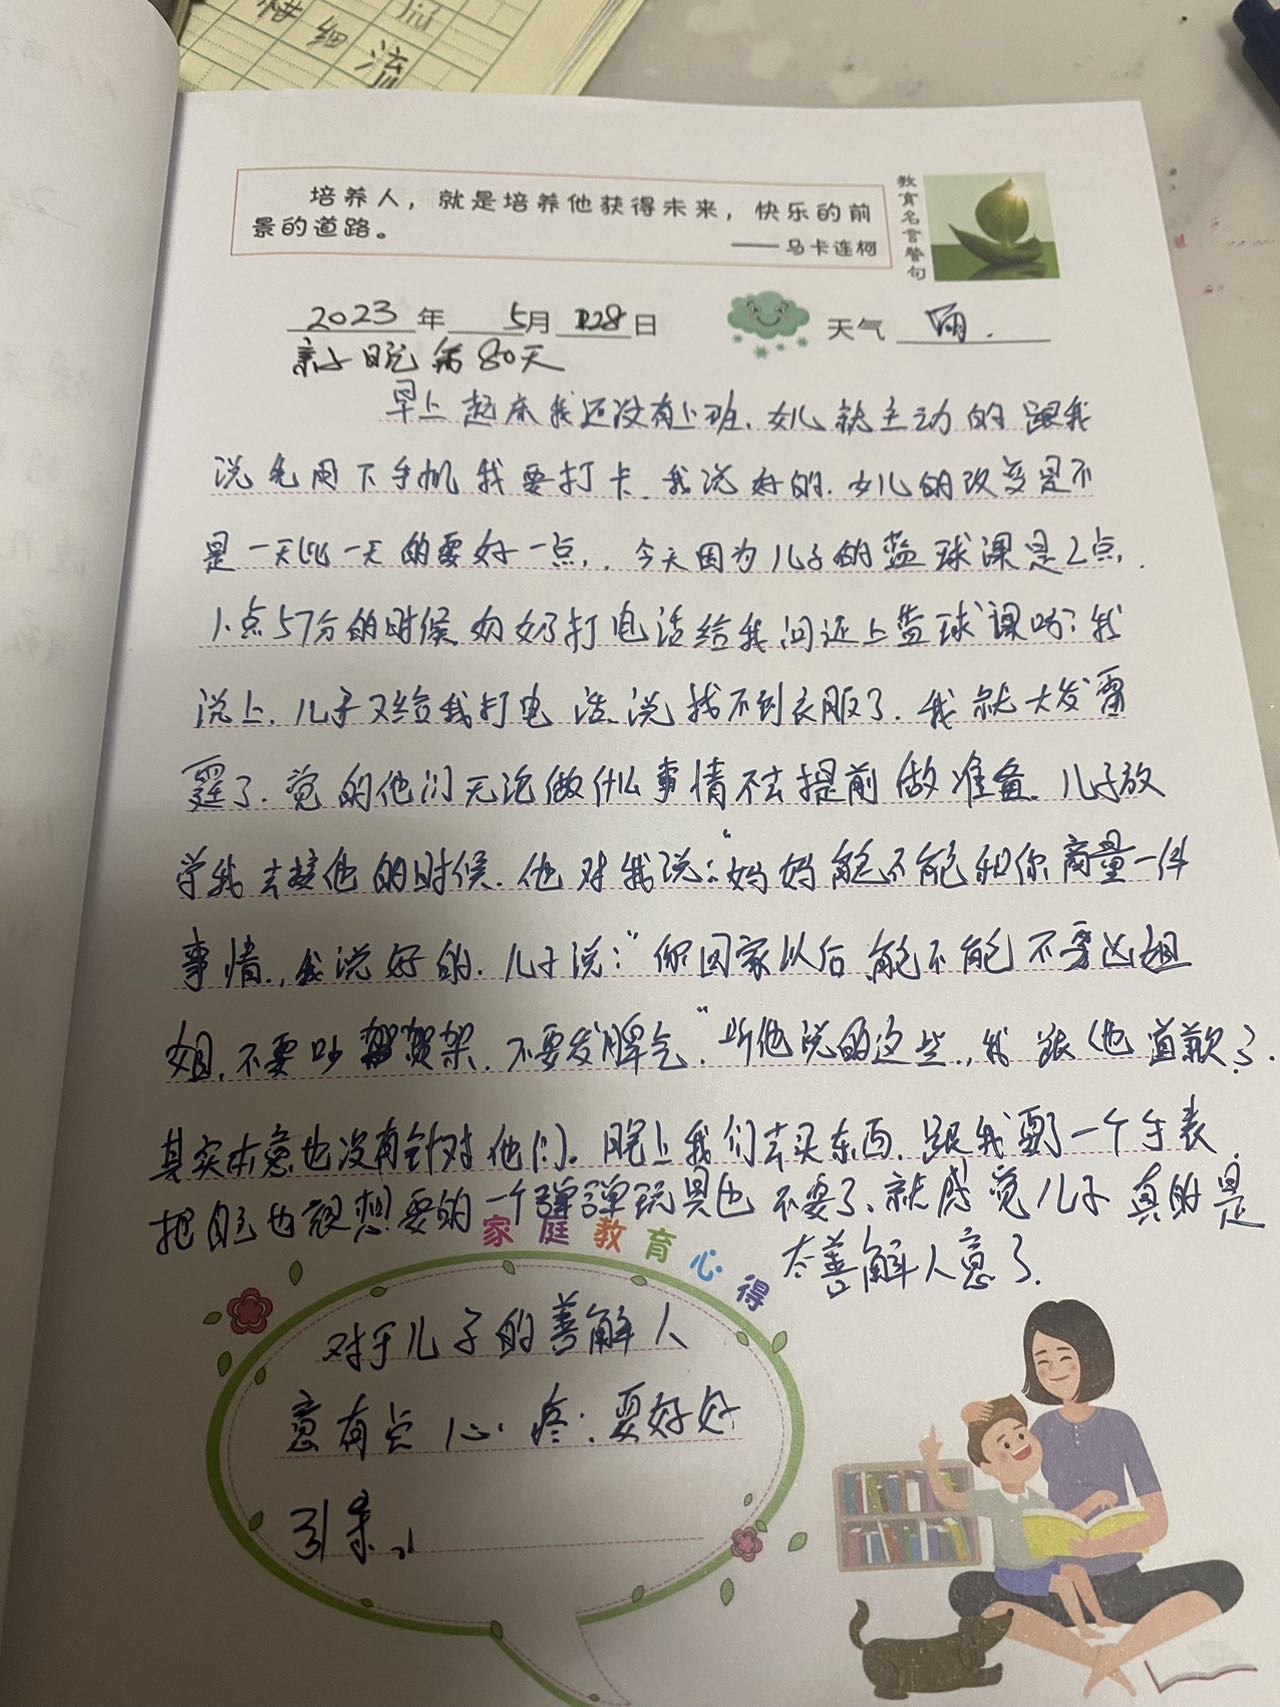 惜 细 流
liú
培养人，就是培养他获得未来，快乐的前
景的道路。
——马卡连柯
教育名言警句
2023年 5月 28日 天气 雨.
亲子日记 第80天
早上起床我还没有上班.女儿就主动的跟我
说先用下手机我要打卡.我说好的.女儿的改变是不
是一天比一天的要好一点,.今天因为儿子的篮球课是2点.
1点57分的时候奶奶打电话给我问还上篮球课吗?我
说上.儿子又给我打电话.说找不到衣服了.我就大发雷
霆了.觉的他们无论做什么事情不去提前做准备.儿子放
学我去接他的时候.他对我说:"妈妈能不能和你商量一件
事情.,我说好的.儿子说:"你回家以后能不能不要凶姐
姐,不要吵架.不要发脾气".听他说的这些.,我跟他道歉了.
其实本意也没有针对他们。晚上我们去买东西.跟我要了一个手表
把自己也很想要的一个弹弹玩具也不要了、就感觉儿子真的是
太善解人意了.
家庭教育心得
对于儿子的善解人
意有点心疼.要好好
引来.